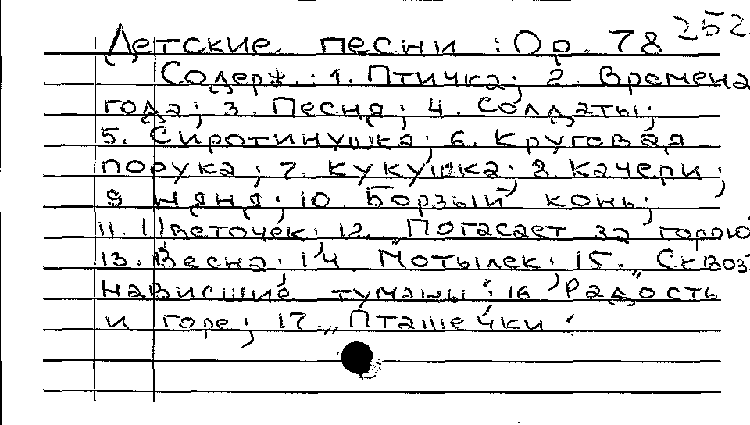 Детские песни : Ор. 78 252
Содерж.: 1. Птичка; 2. Времена
года; 3. Песня; 4. Солдаты;
5. Сиротинушка; 6. Круговая
порука; 7. Кукушка; 8. Качели;
9 Няня; 10. Борзый конь;
11. Цветочек; 12. „Погасает за горою
13. Весна; 14. Мотылек; 15. „Сквоз
нависшие туманы"; 16 Радость
и горе; 17 „Пташечки